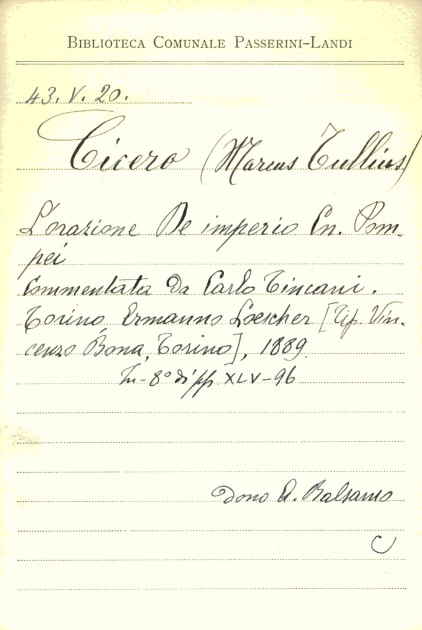 BIBLIOTECA COMUNALE PASSERINI-LANDI
43. V. 20.
Cicero (Marcus Tullius)
L'orazione De imperio Cn. Pom-
pei
Commentata da Carlo Tincani.
Torino Ermanno Loescher [Tip. Vin-
cenzo Bona, Torino], 1889
In-8° di pp XLV-96
dono A. Balsamo
C